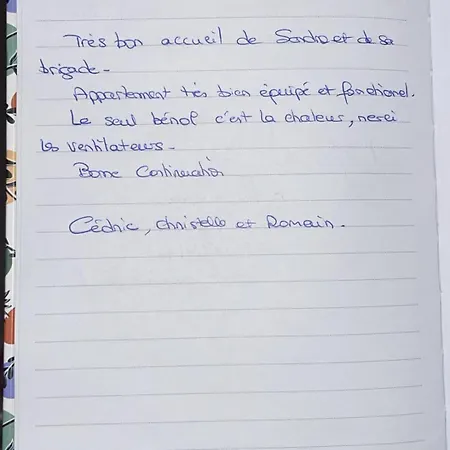 Très bon accueil de Sandro et de sa
brigade.
Appartement très bien équipé et fonctionel.
Le seul bémol c'est la chaleur, merci
les ventilateurs.
Bonne Continuation
Cédric, Christelle et Romain.